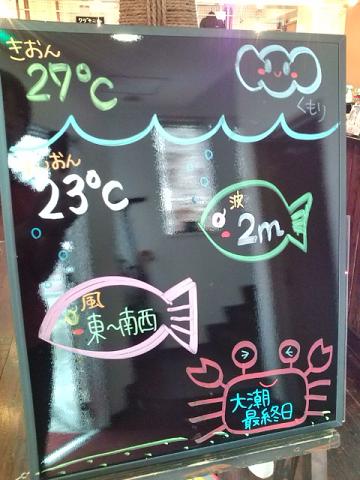 きおん
27℃
くもり
おん
23℃
波
2m
風
東～南西
大潮
最終日